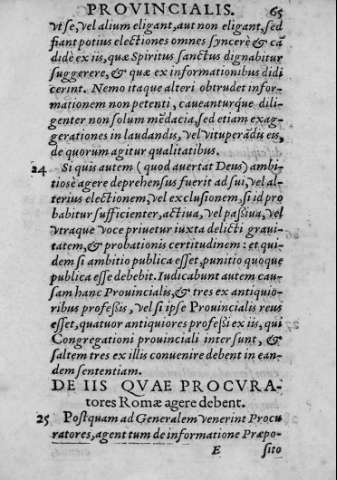 PROVINCIALIS. 65
vt se, vel alium eligant, aut non eligant, sed
fiant potius electiones omnes syncerè & cā
didè ex iis, quæ Spiritus sanctus dignabitur
suggerere, & quæ ex informationibus didi
cerint. Nemo itaque alteri obtrudet infor-
mationem non petenti, caueanturque dili-
genter non solum mēdacia, sed etiam exag-
gerationes in laudandis, vel vituperādu eis,
de quorum agitur qualitatibus.
24 Si quis autem (quod auertat Deus) ambi-
tiosè agere deprehensus fuerit ad sui, vel al-
terius electionem, vel exclusionem, si id pro
babitur sufficienter, actiua, vel passiua, vel
vtraque voce priuetur iuxta delicti graui-
tatem, & probationis certitudinem: et qui-
dem si ambitio publica esset, punitio quoque
publica esse debebit. Iudicabunt autem cau-
sam hanc Prouincialis, & tres ex antiquio-
ribus professis, vel si ipse Prouincialis reus
esset, quatuor antiquiores professi ex iis, qui
Congregationi prouinciali intersunt, &
saltem tres ex illis conuenire debent in ean-
dem sententiam.
DE IIS QVAE PROCVRA-
tores Romæ agere debent.
25 Postquam ad Generalem venerint Procu
ratores, agent tum de informatione Præpo-
E sito